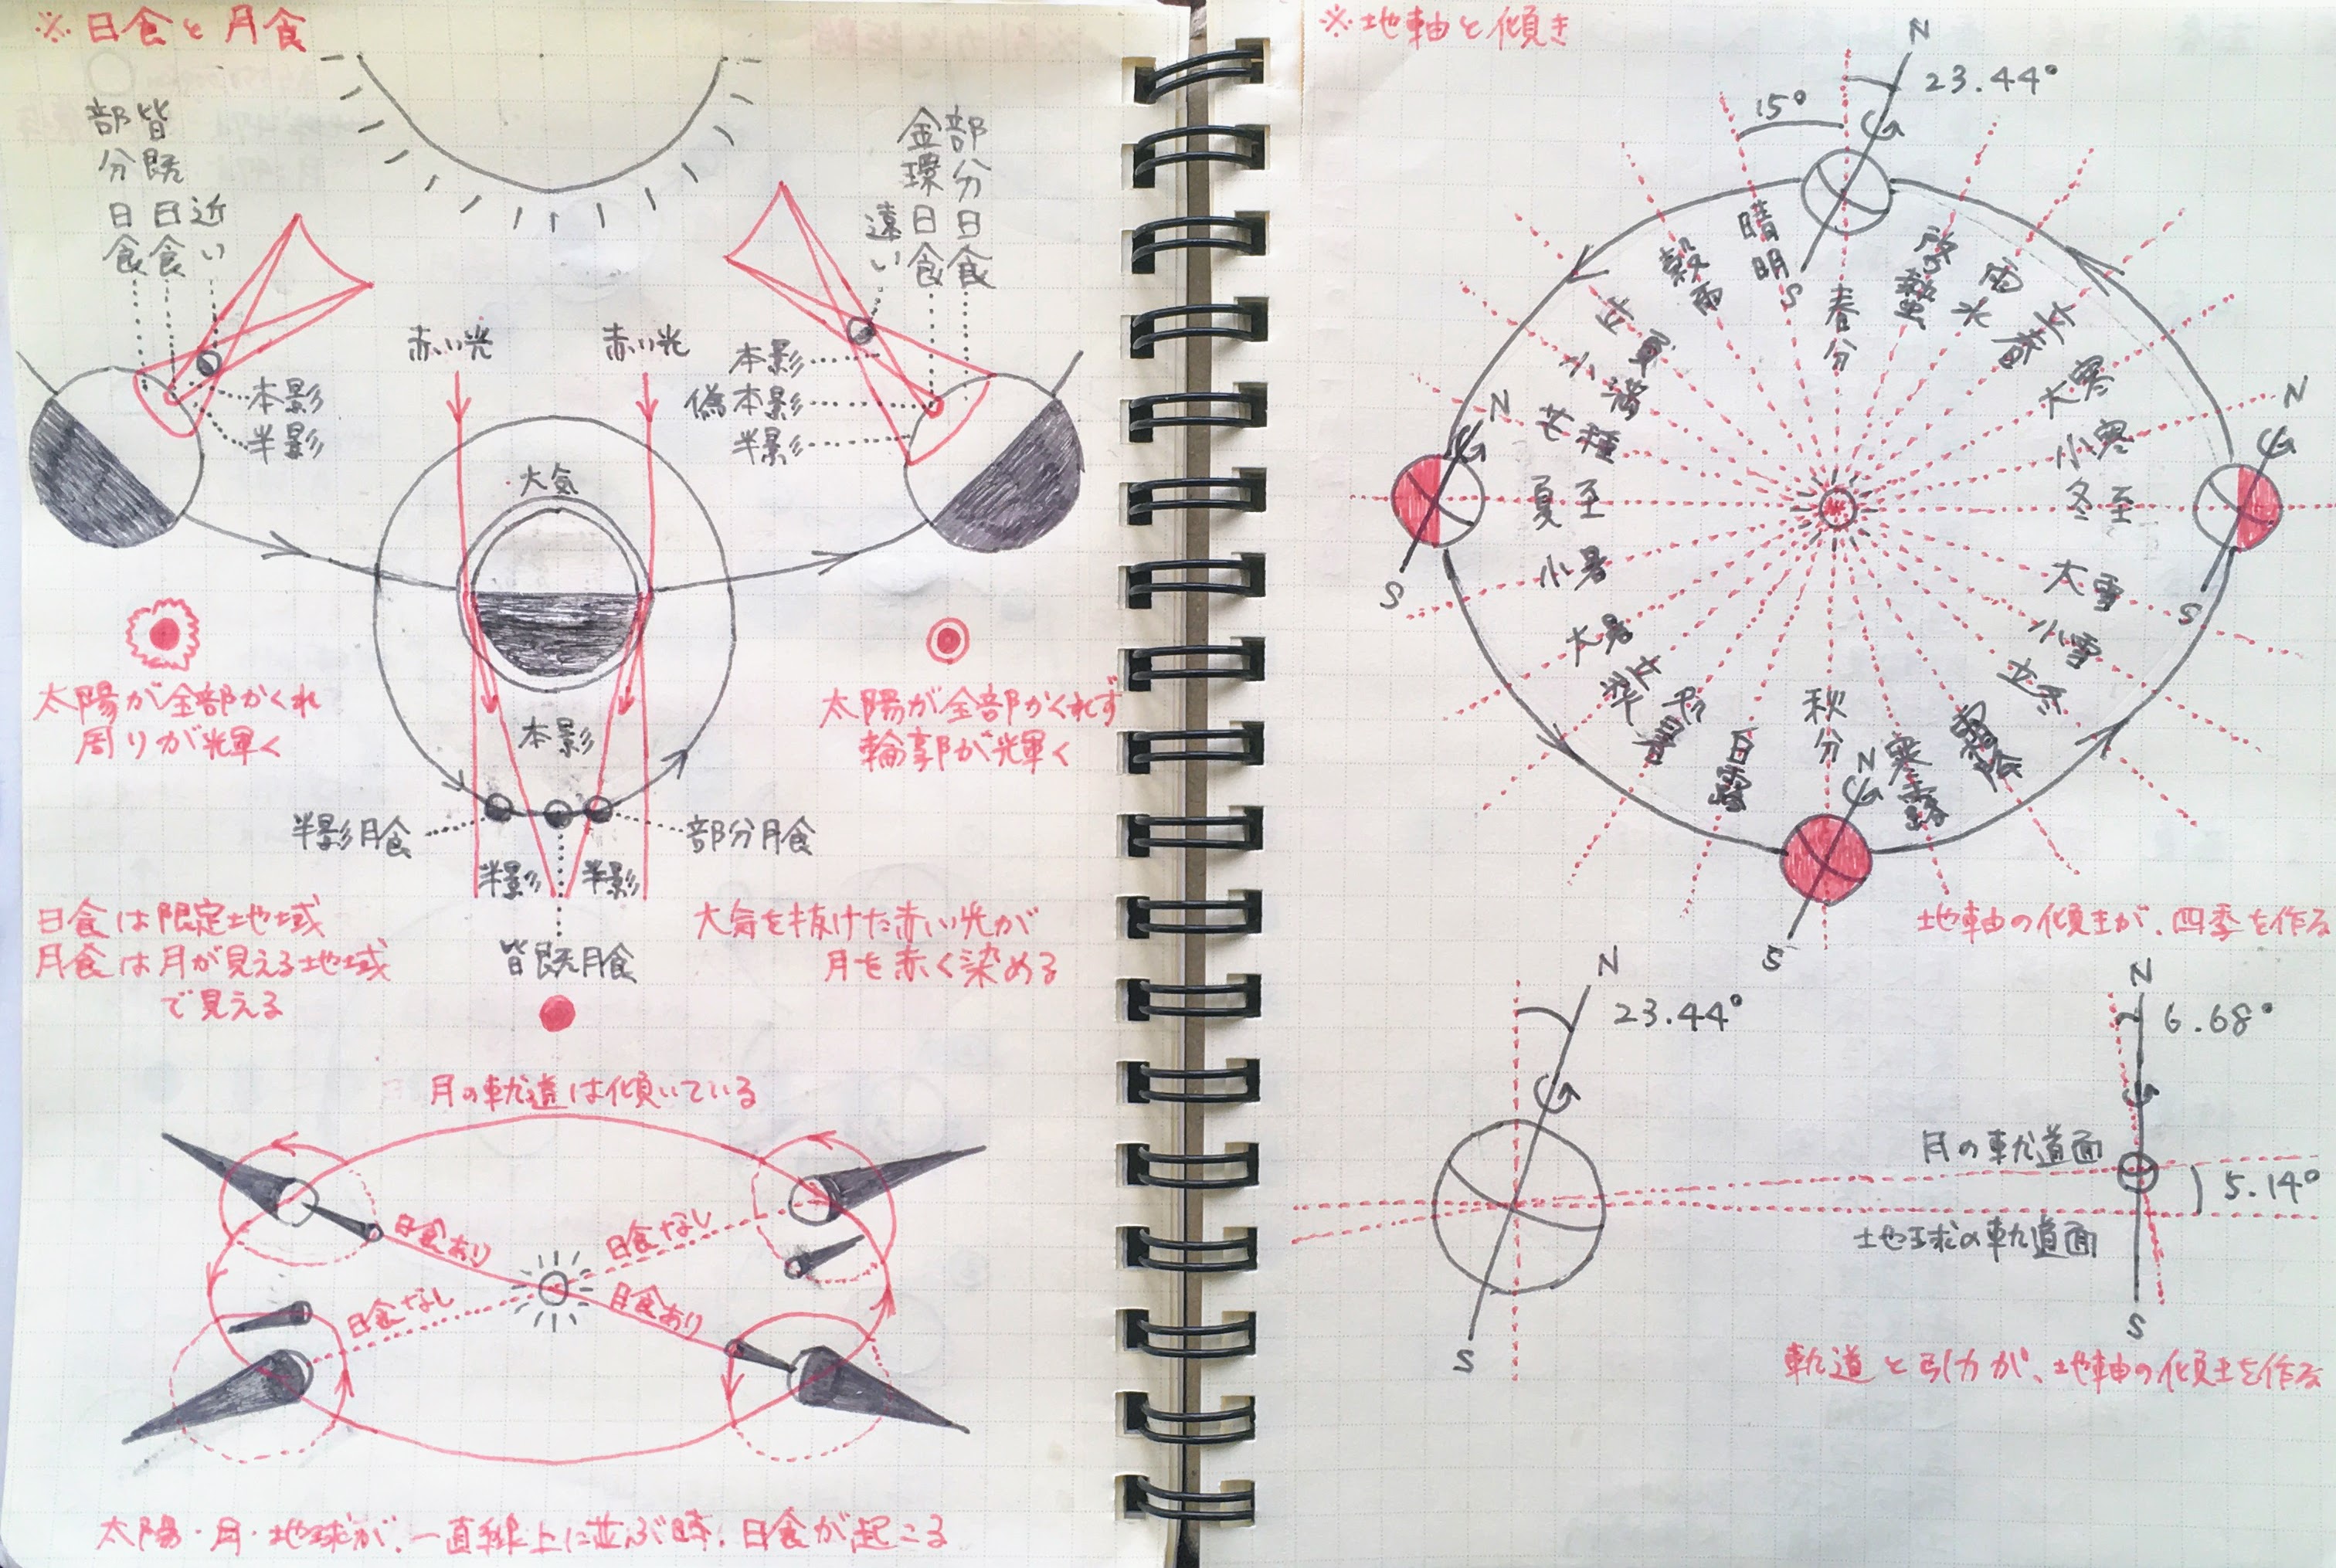 ※日食と月食
部分日食
皆既日食
近い
金環日食
部分日食
遠い
赤い光
赤い光
本影
半影
本影
偽本影
半影
大気
太陽が全部かくれ
周りが光輝く
太陽が全部かくれず
輪郭が光輝く
本影
半影月食
部分月食
半影
半影
皆既月食
日食は限定地域
月食は月が見える地域
で見える
大気を抜けた赤い光が
月を赤く染める
月の軌道は傾いている
日食あり
日食なし
日食なし
月食あり
太陽・月・地球が、一直線上に並ぶ時、日食が起こる
※地軸と傾き
N
23.44°
15°
S
春分
晴明
穀雨
立夏
小満
芒種
夏至
小暑
大暑
立秋
処暑
白露
秋分
寒露
霜降
立冬
小雪
大雪
冬至
小寒
大寒
立春
雨水
啓蟄
N
S
N
S
N
S
地軸の傾きが、四季を作る
N
23.44°
S
N
6.68°
月の軌道面
5.14°
地球の軌道面
S
軌道と引力が、地軸の傾きを作る